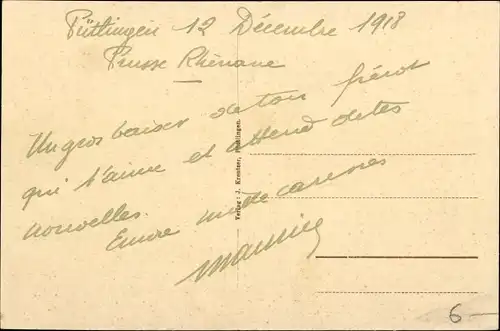 Püttlingen 12 Décembre 1918
Prusse Rhénane
Un gros baiser de ton frérot
qui t'aime et attend de tes
nouvelles.
Encore mille caresses
Maurice
Verlag: J. Kreutzer, Püttlingen.
6-